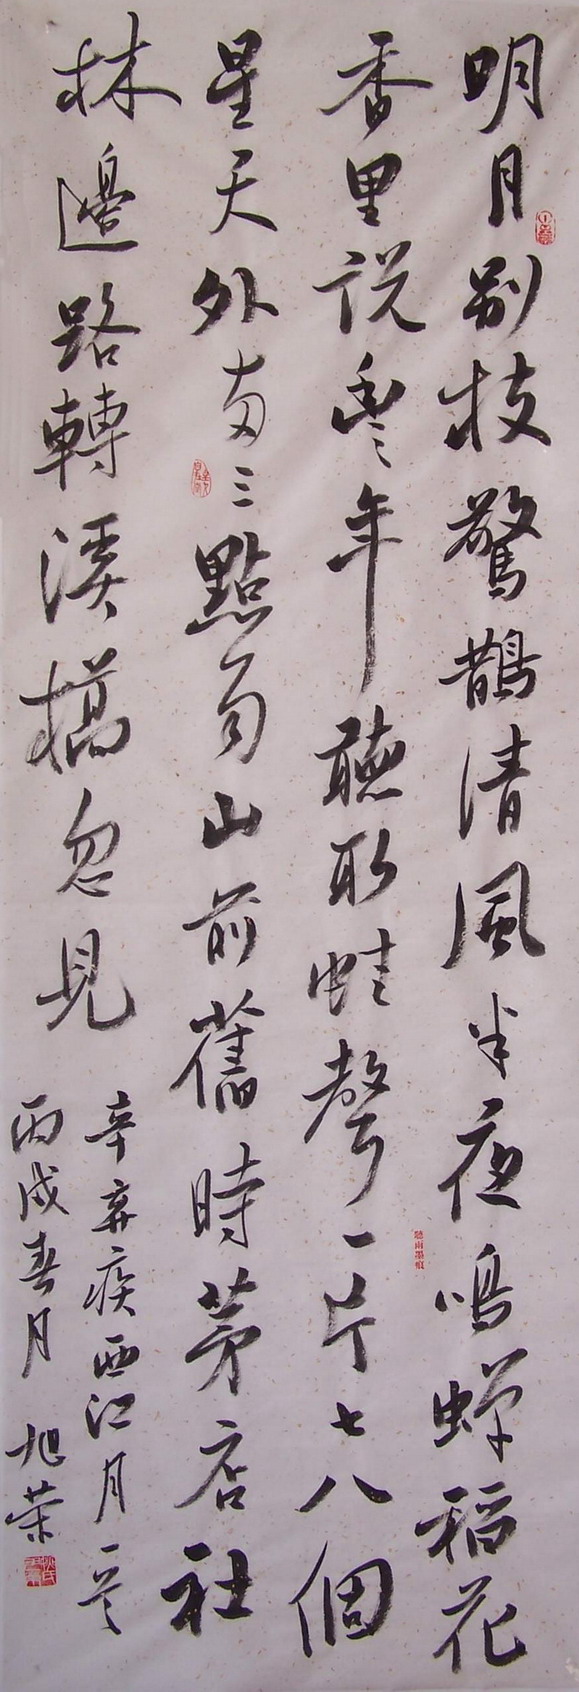 明月别枝驚鵲清風半夜鳴蝉稻花
香里説豐年聽取蛙聲一片七八個
星天外两三點雨山前舊時茅店社
林邊路轉溪橋忽見
辛弃疾西江月一首
丙戌春月 旭荣
聽雨墨痕